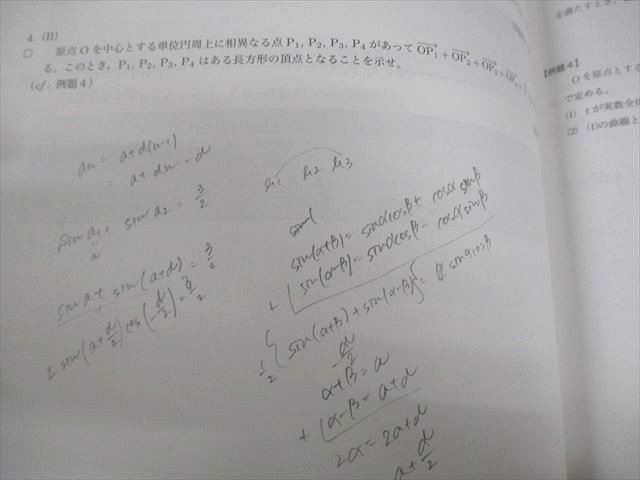 4. (B)
□ 原点 O を中心とする単位円周上に相異なる点 P₁, P₂, P₃, P₄ があって OP₁ + OP₂ + OP₃ +
る。このとき, P₁, P₂, P₃, P₄ はある長方形の頂点となることを示せ。
(cf : 例題4)
を満たすとき,
【例題4】
O を原点とする
で定める。
(1) t が実数全体
(2) (1)の曲線と
an = a+d(n-1)
= a+dn-d
sin a₁ + sin a₂ = 3/2
a
sin a + sin(a+d) = 3/2
2 sin(a+d/2) cos(-d/2) = 3/2
sin(α+β) = sinαcosβ + cosα sinβ
+ sin(α-β) = sinαcosβ - cosα sinβ
1/2 { sin(α+β) + sin(α-β) } = sinαcosβ
-d/2
α+β = a
+ α-β = a+d
2α = 2a+d
a+d/2